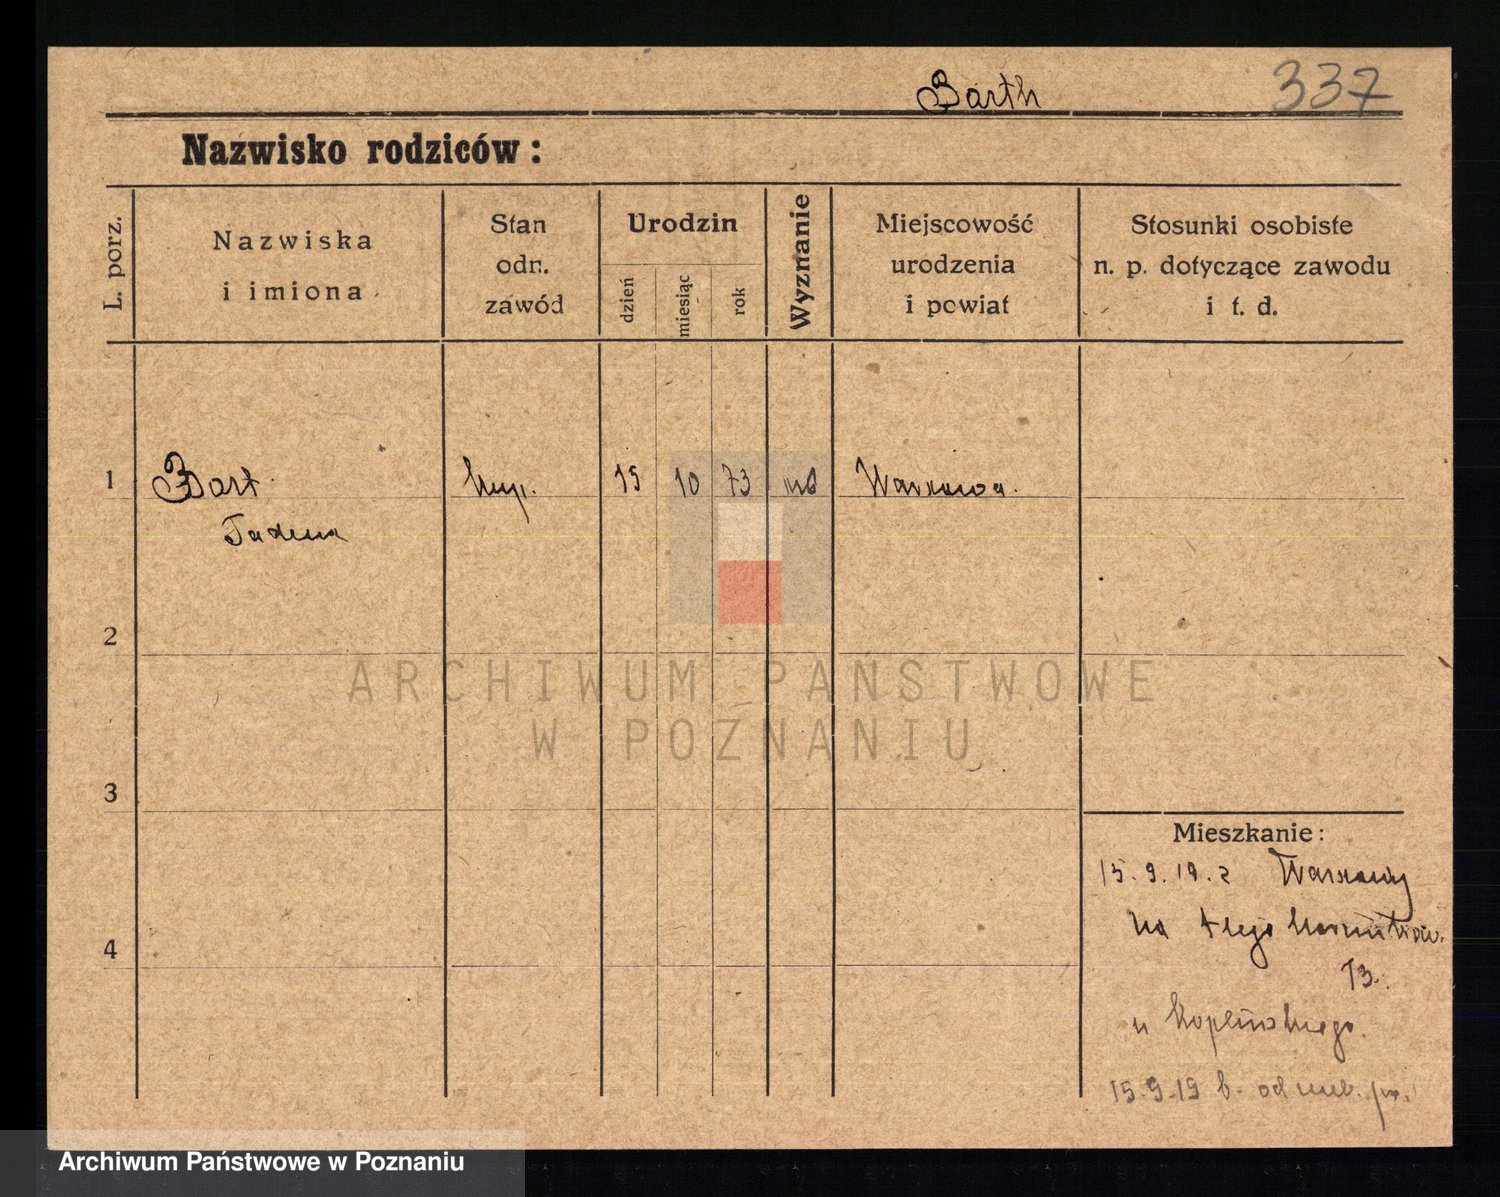 Barth 337
Nazwisko rodziców:
L. porz.
Nazwiska
i imiona
Stan
odn.
zawód
Urodzin
dzień
miesiąc
rok
Wyznanie
Miejscowość
urodzenia
i powiat
Stosunki osobiste
n. p. dotyczące zawodu
i t. d.
1 Bart kup. 15 10 73 Warszawa.
2
3
4
Mieszkanie:
15.9.19. z Warszawy
na
13.
u Koplińskiego.
15.9.19
ARCHIWUM PAŃSTWOWE
W POZNANIU
Archiwum Państwowe w Poznaniu